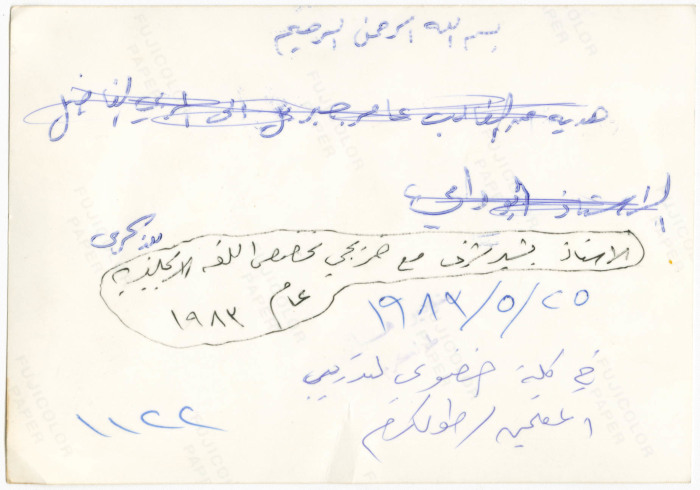 بسم الله الرحمن الرحيم
هديه من الطالب عامر صبري الى المربي الفاضل
الاستاذ
للذكرى
الاستاذ رشيد شرف مع خريجي تخصص اللغه الانجليزيه
عام ١٩٨٣
١٩٨٣/٥/٢٥
في كلية خضوري لتدريب
المعلمين / طولكرم
١١٢٢
FUJICOLOR
PAPER